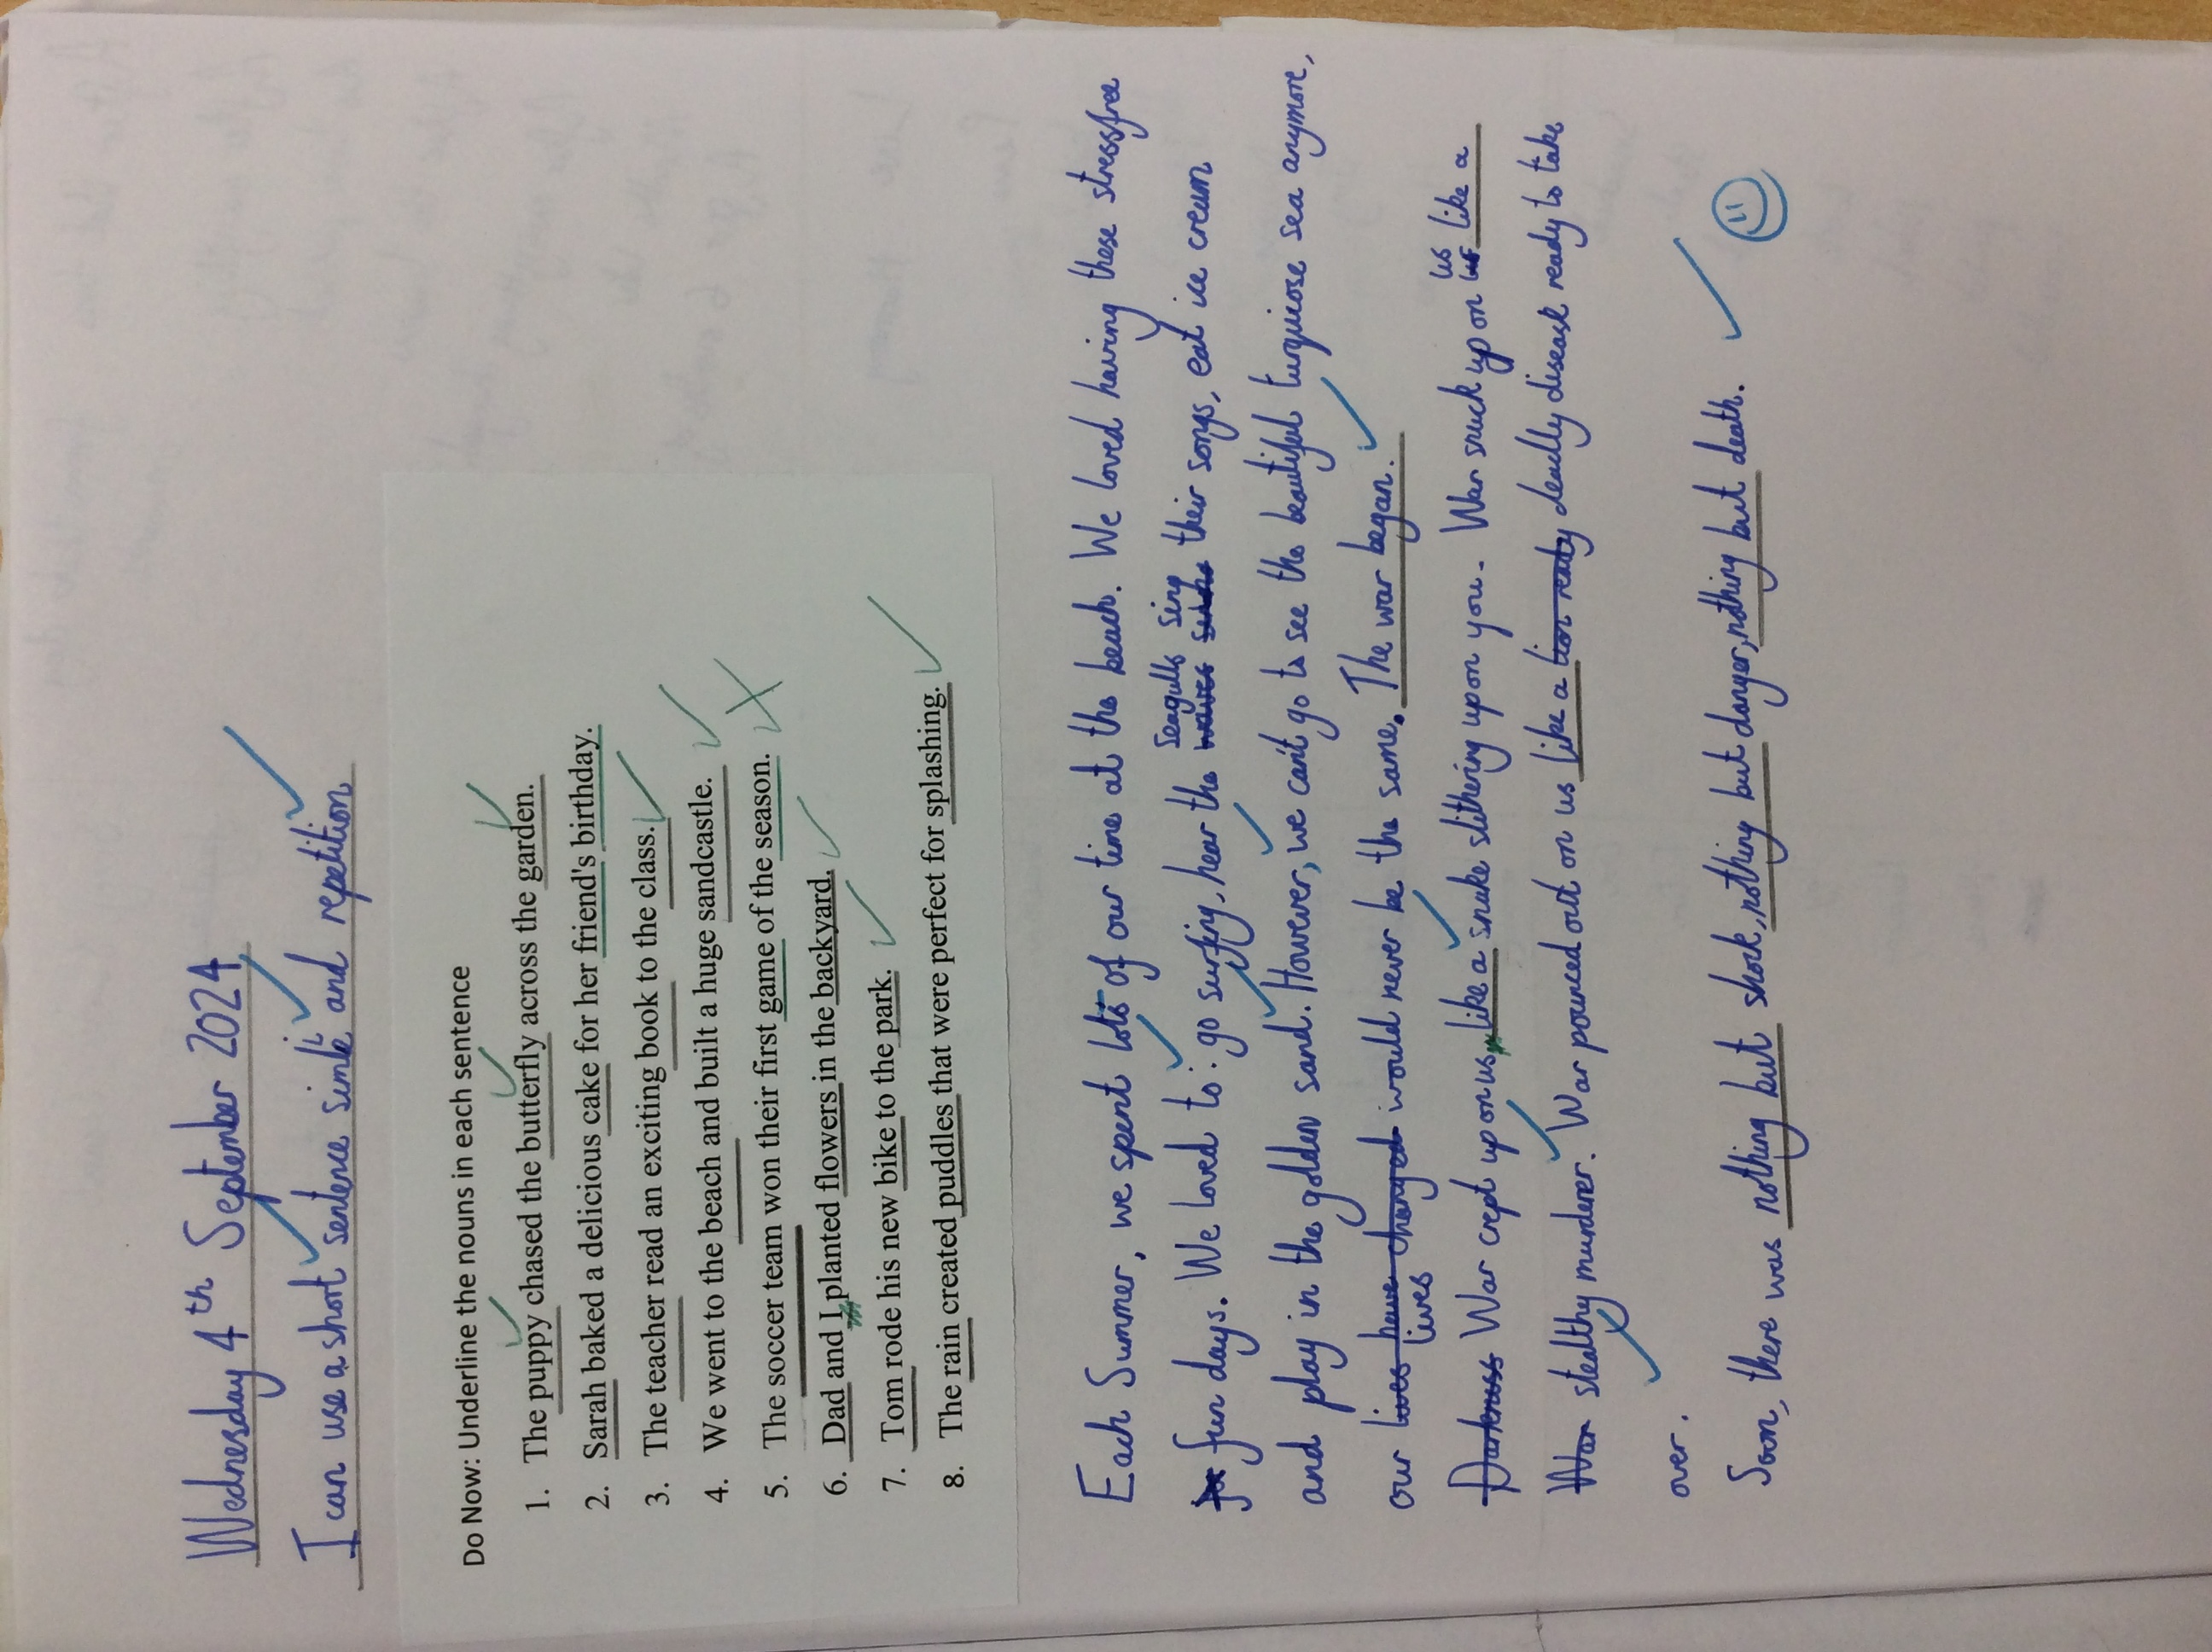 Wednesday 4th September 2024
I can use a short sentence simile and repetition
Do Now: Underline the nouns in each sentence
1. The puppy chased the butterfly across the garden.
2. Sarah baked a delicious cake for her friend's birthday.
3. The teacher read an exciting book to the class.
4. We went to the beach and built a huge sandcastle.
5. The soccer team won their first game of the season.
6. Dad and I planted flowers in the backyard.
7. Tom rode his new bike to the park.
8. The rain created puddles that were perfect for splashing.
Each Summer, we spent lots of our time at the beach. We loved having these stressfree
fun days. We loved to: go surfing, hear the seagulls sing their songs, eat ice cream
and play in the golden sand. However, we can't go to see the beautiful turquiose sea anymore,
our lives would never be the same. The war began.
War crept up on us like a snake slithering upon you. War snuck up on us like a
stealthy murderer. War pounced out on us like a deadly disease ready to take
over.
Soon, there was nothing but shock, nothing but danger, nothing but death.